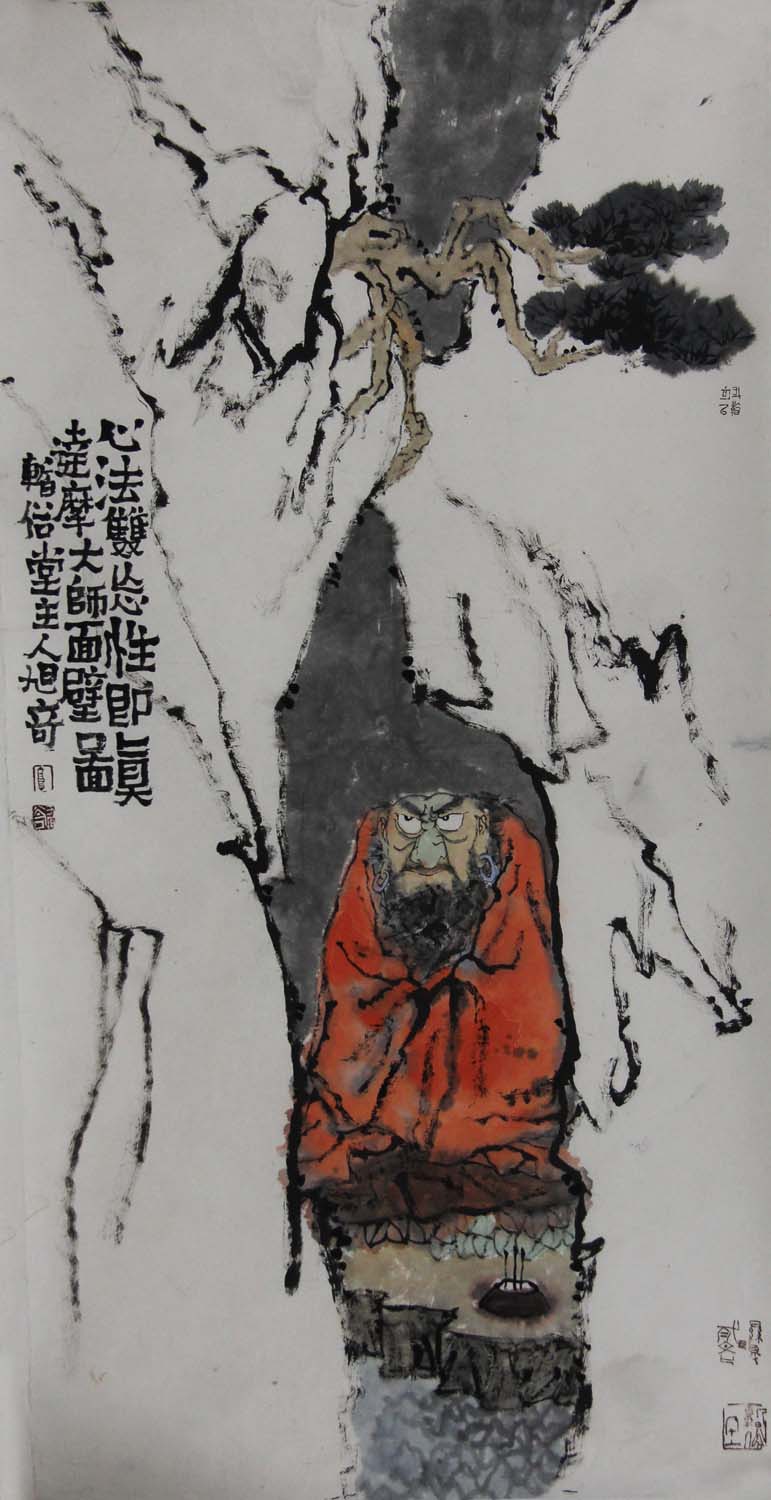 心法雙忘性即真
達摩大師面壁啚
暫俗堂主人旭奇